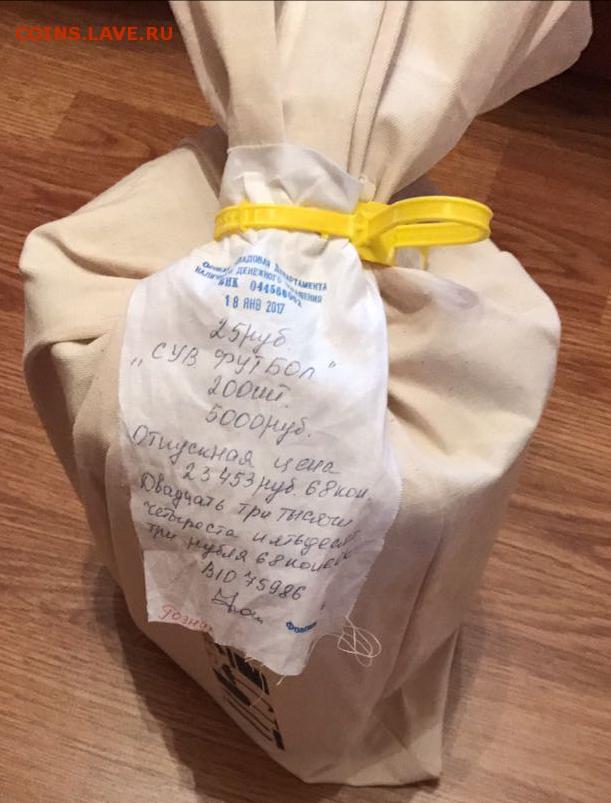 COINS.LAVE.RU
КЛАДОВАЯ ДЕПАРТАМЕНТА
НАЛИЧНО ДЕНЕЖНОГО ОБРАЩЕНИЯ
БИК
18 ЯНВ 2017
25 руб.
„СУВ. ФУТБОЛ"
200 шт.
5000 руб.
Отпускная цена
23453 руб. 68 коп.
Двадцать три тысячи
четыреста пятьдесят
три рубля 68 копеек
В10 75986